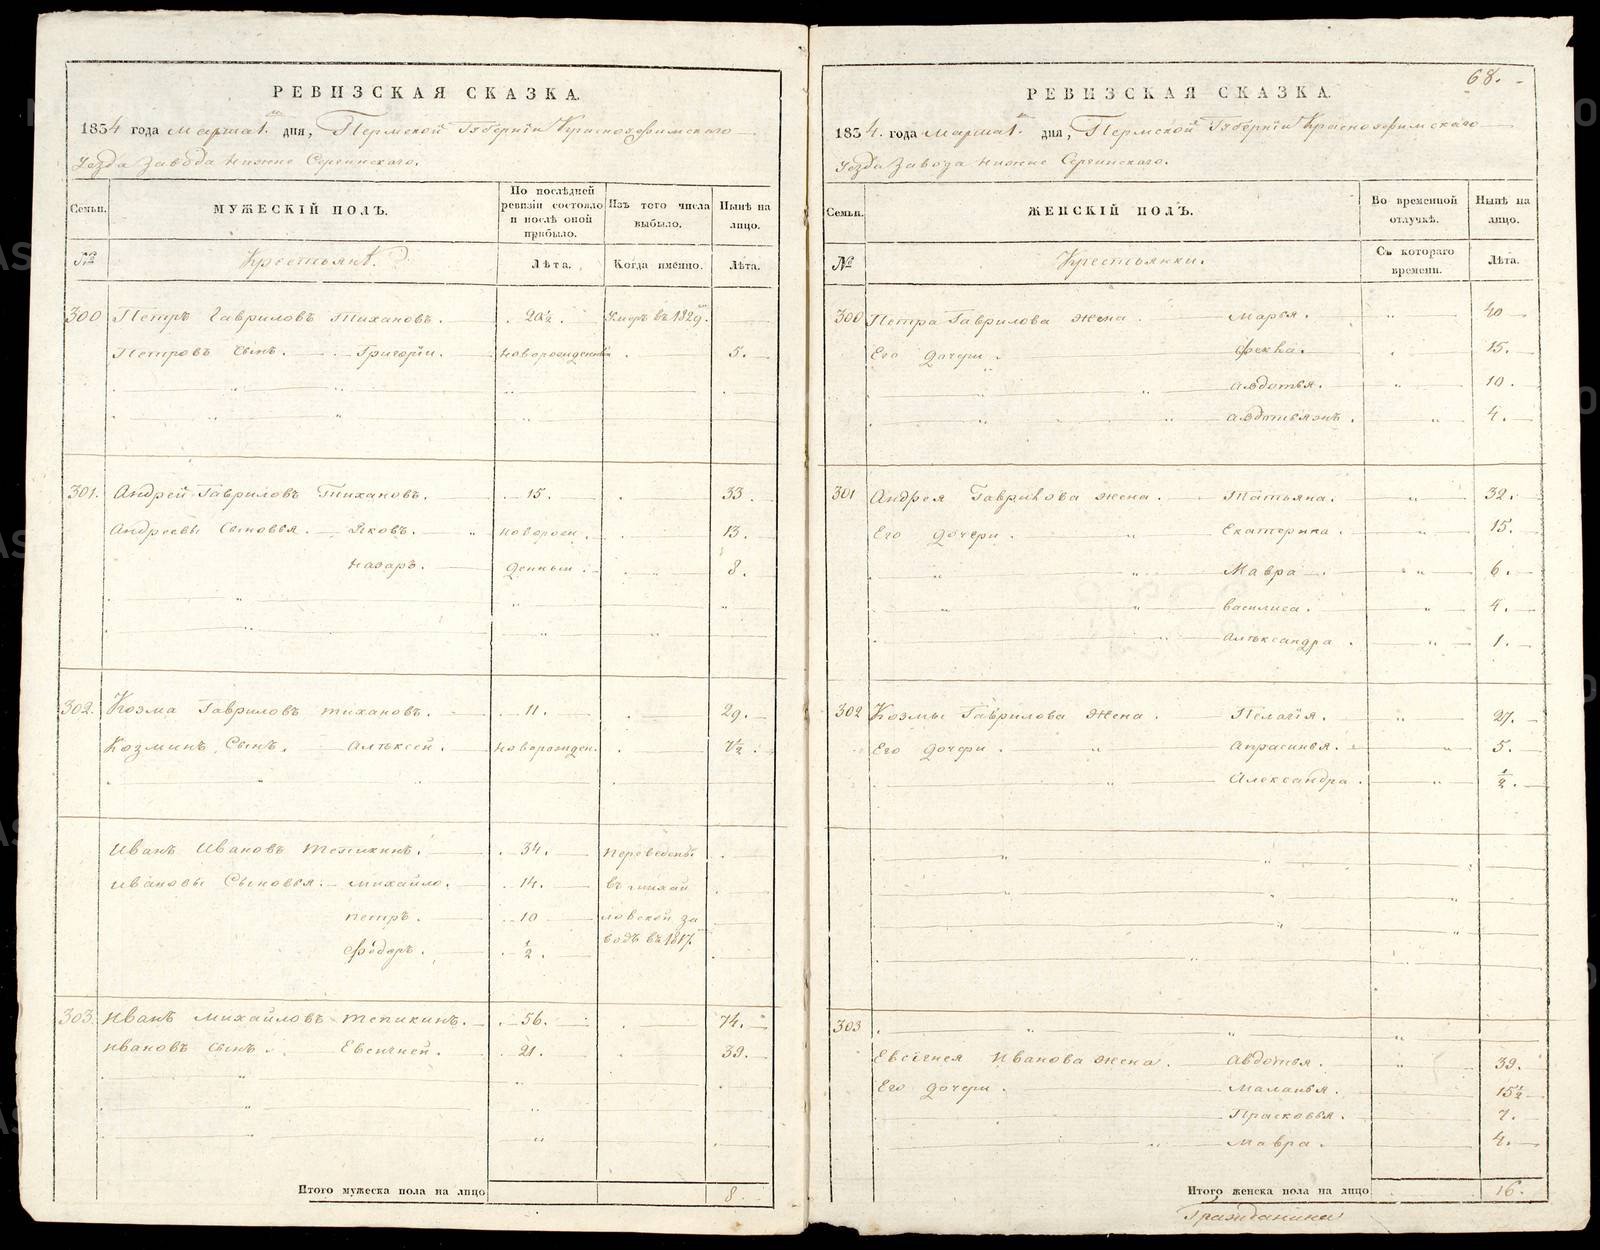 РЕВИЗСКАЯ СКАЗКА.
1834 года марта 1. дня, Пермской Губернїи Красноуфимскаго
Уезда Завода Нижне Сергинскаго.
Семьи. МУЖЕСКІЙ ПОЛЪ. По послѣдней ревизіи состояло и послѣ оной прибыло. Изъ того числа выбыло. Нынѣ на лицо.
№ Крестьянѣ Лѣта. Когда именно. Лѣта.
300 Петръ Гавриловъ Тихановъ. 20½. Умеръ въ 1829.
Петровъ сынъ. Григорїи. новорожденный 5.
301. Андрей Гавриловъ Тихановъ. 15. 33.
Андреевы Сыновья. Яковъ. новорож. 13.
Назаръ. денныи. 8.
302. Козма Гавриловъ тихановъ. 11. 29.
Козминъ Сынъ. Алѣксей. новорожден. 7½.
Иванъ Ивановъ тепикинъ. 34. переведенъ
Ивановы Сыновья. михайло. 14. въ михай
петръ. 10 ловской за
Федоръ. ½. водъ въ 1817.
303. Иванъ михайловъ тепикинъ. 56. 74.
Ивановъ сынъ. Евсигней. 21. 39.
Итого мужеска пола на лицо 8.
68.
РЕВИЗСКАЯ СКАЗКА.
1834. года марта 1. дня, Пермской Губернїи Красноуфимскаго
Уезда Завода Нижне Сергинскаго.
Семьи. ЖЕНСКІЙ ПОЛЪ. Во временной отлучкѣ. Нынѣ на лицо.
№ Крестьянки. Съ котораго времени. Лѣта.
300 Петра Гаврилова жена Марья. 40
Его дочери. Фекла. 15.
Авдотья. 10.
Авдотья жъ. 4.
301 Андрея Гаврилова жена. Татьяна. 32.
Его дочери. Екатерина. 15.
Мавра 6.
Василиса. 4.
Алѣксандра. 1.
302 Козмы Гаврилова жена. Пелагїя. 27.
Его дочери. Апрасинья. 5.
Александра. ½.
303
Евсигнея Иванова жена. Авдотья. 39.
Его дочери. Маланья. 15½
Прасковья. 7.
Мавра. 4.
Итого женска пола на лицо 16.